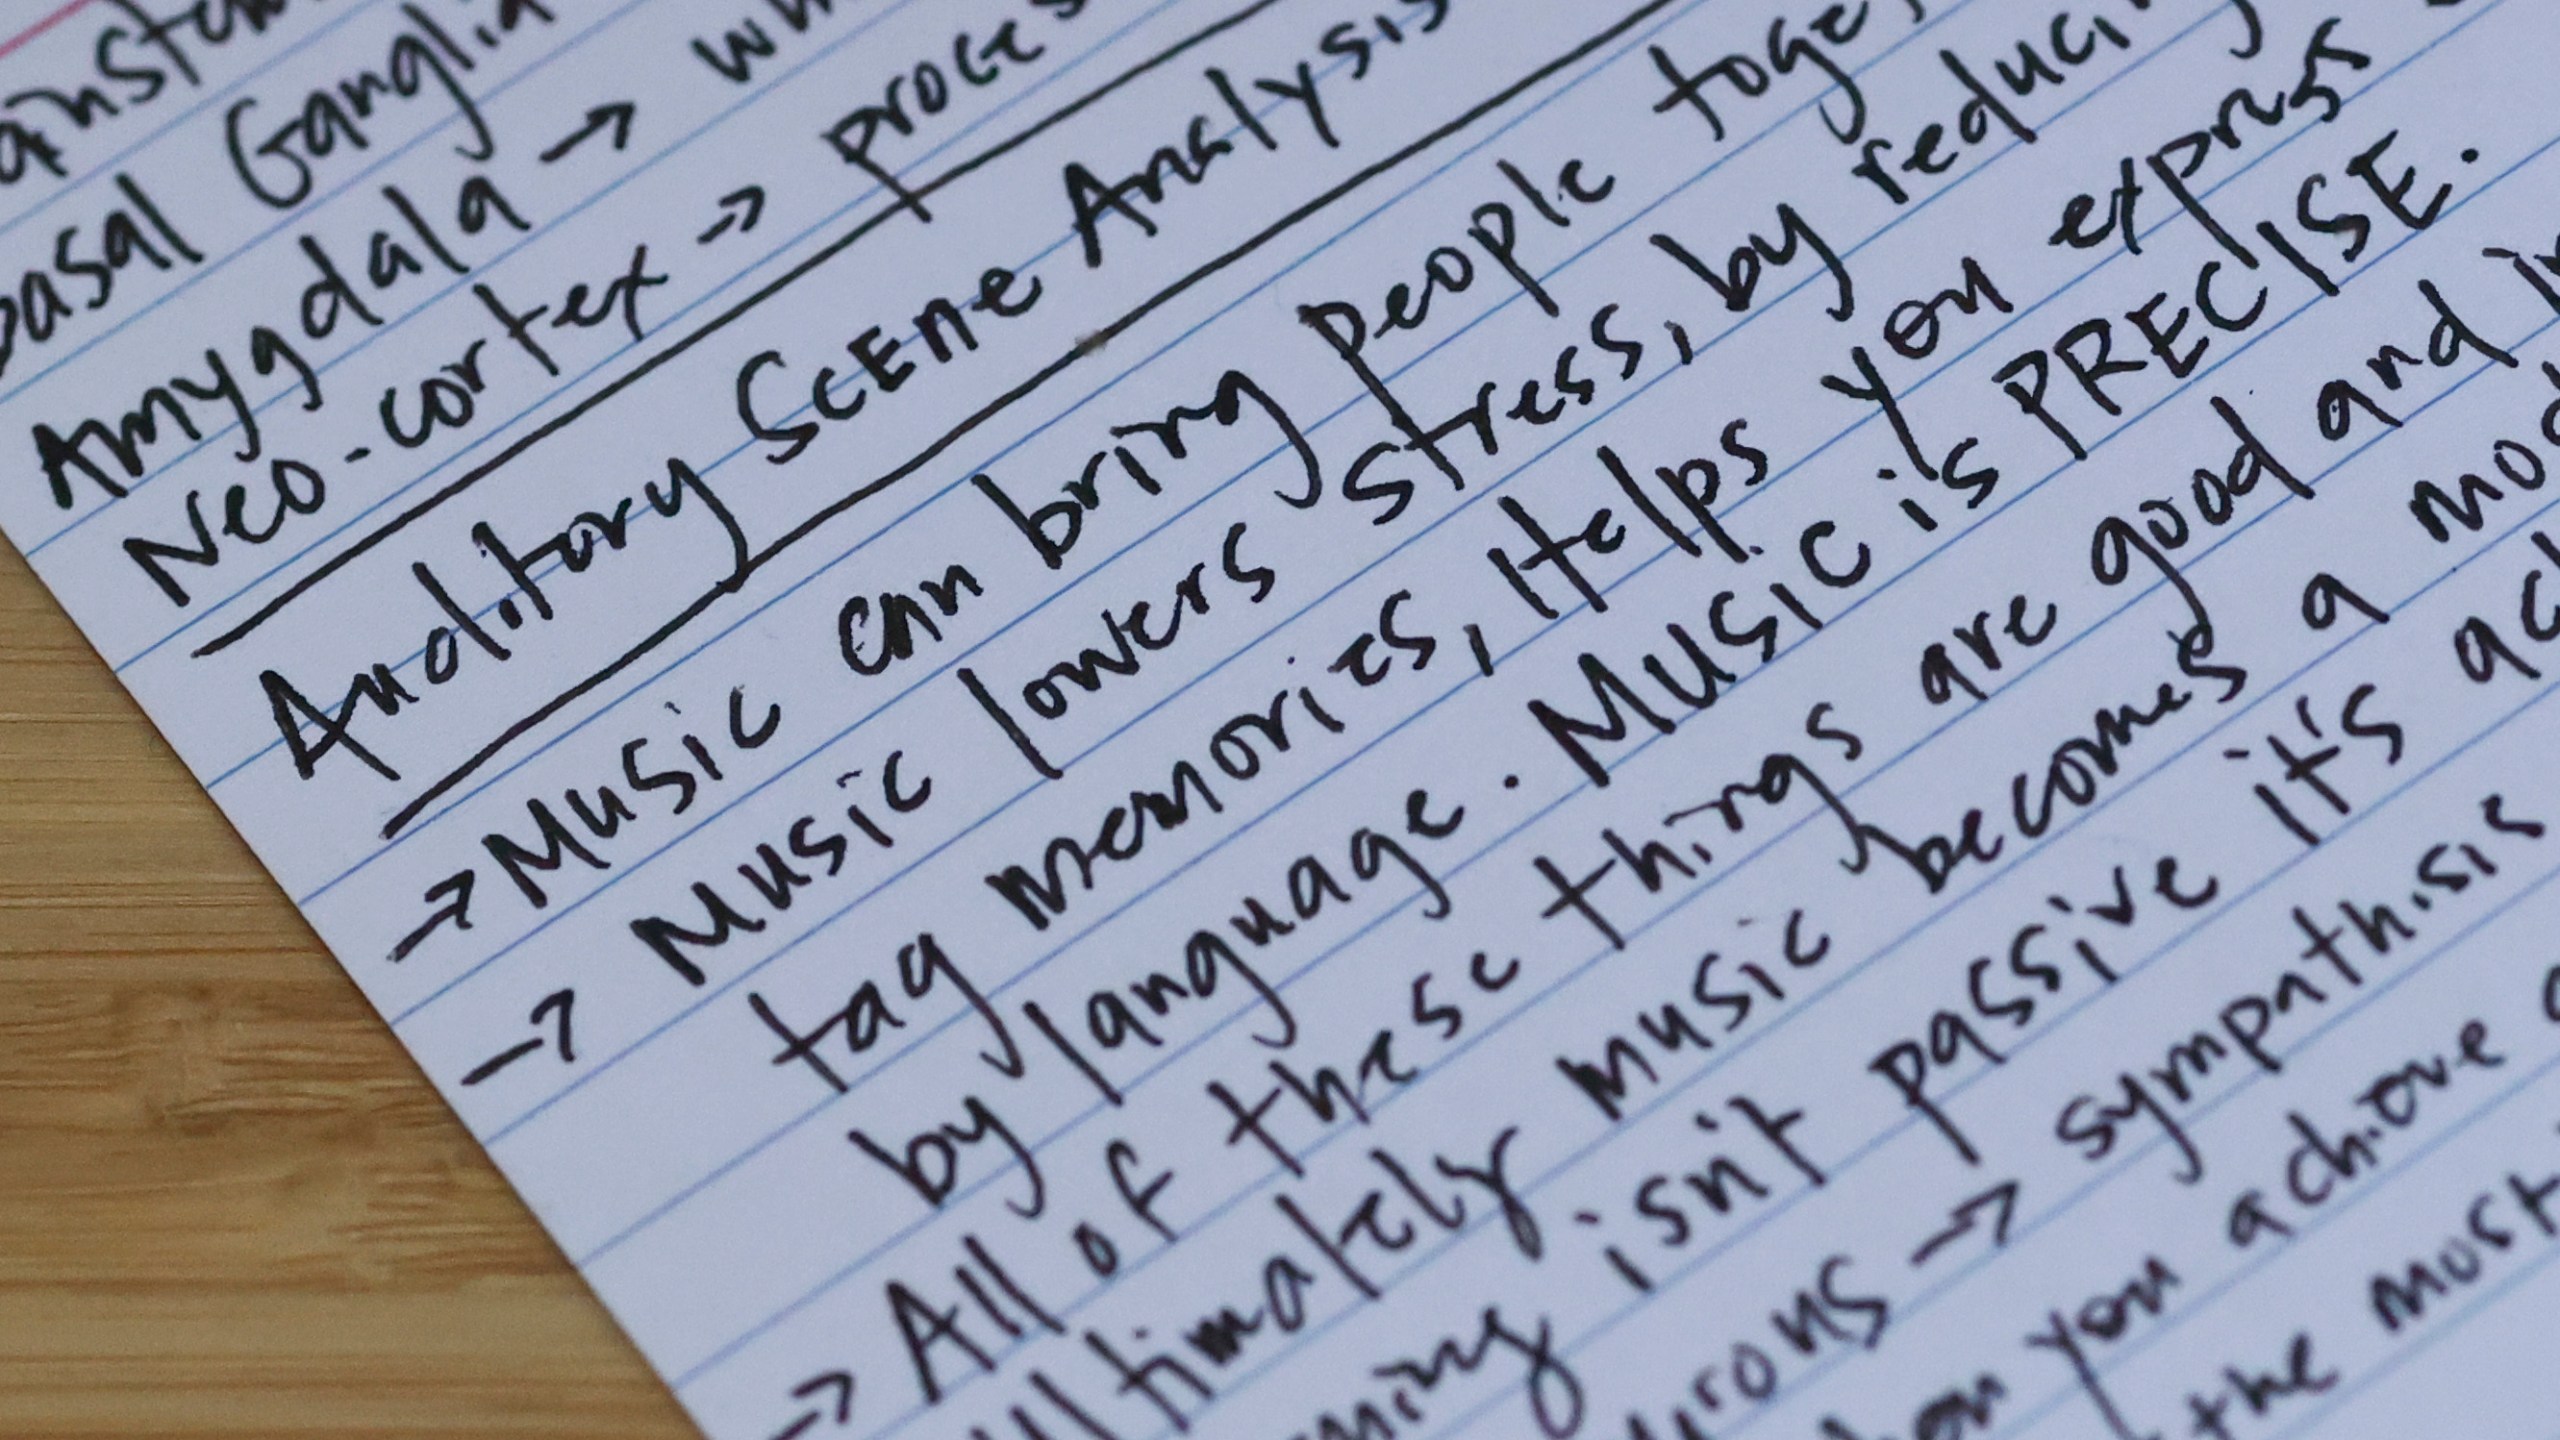 Basal Ganglia
Amygdala →
Neo-cortex →
Auditory Scene Analysis
→ Music can bring people
→ Music lowers stress, by
tag memories, Helps you express
by language. Music is PRECISE.
→ All of these things are good and
Ultimately music becomes a
isn't passive it's
→
you achove
the most